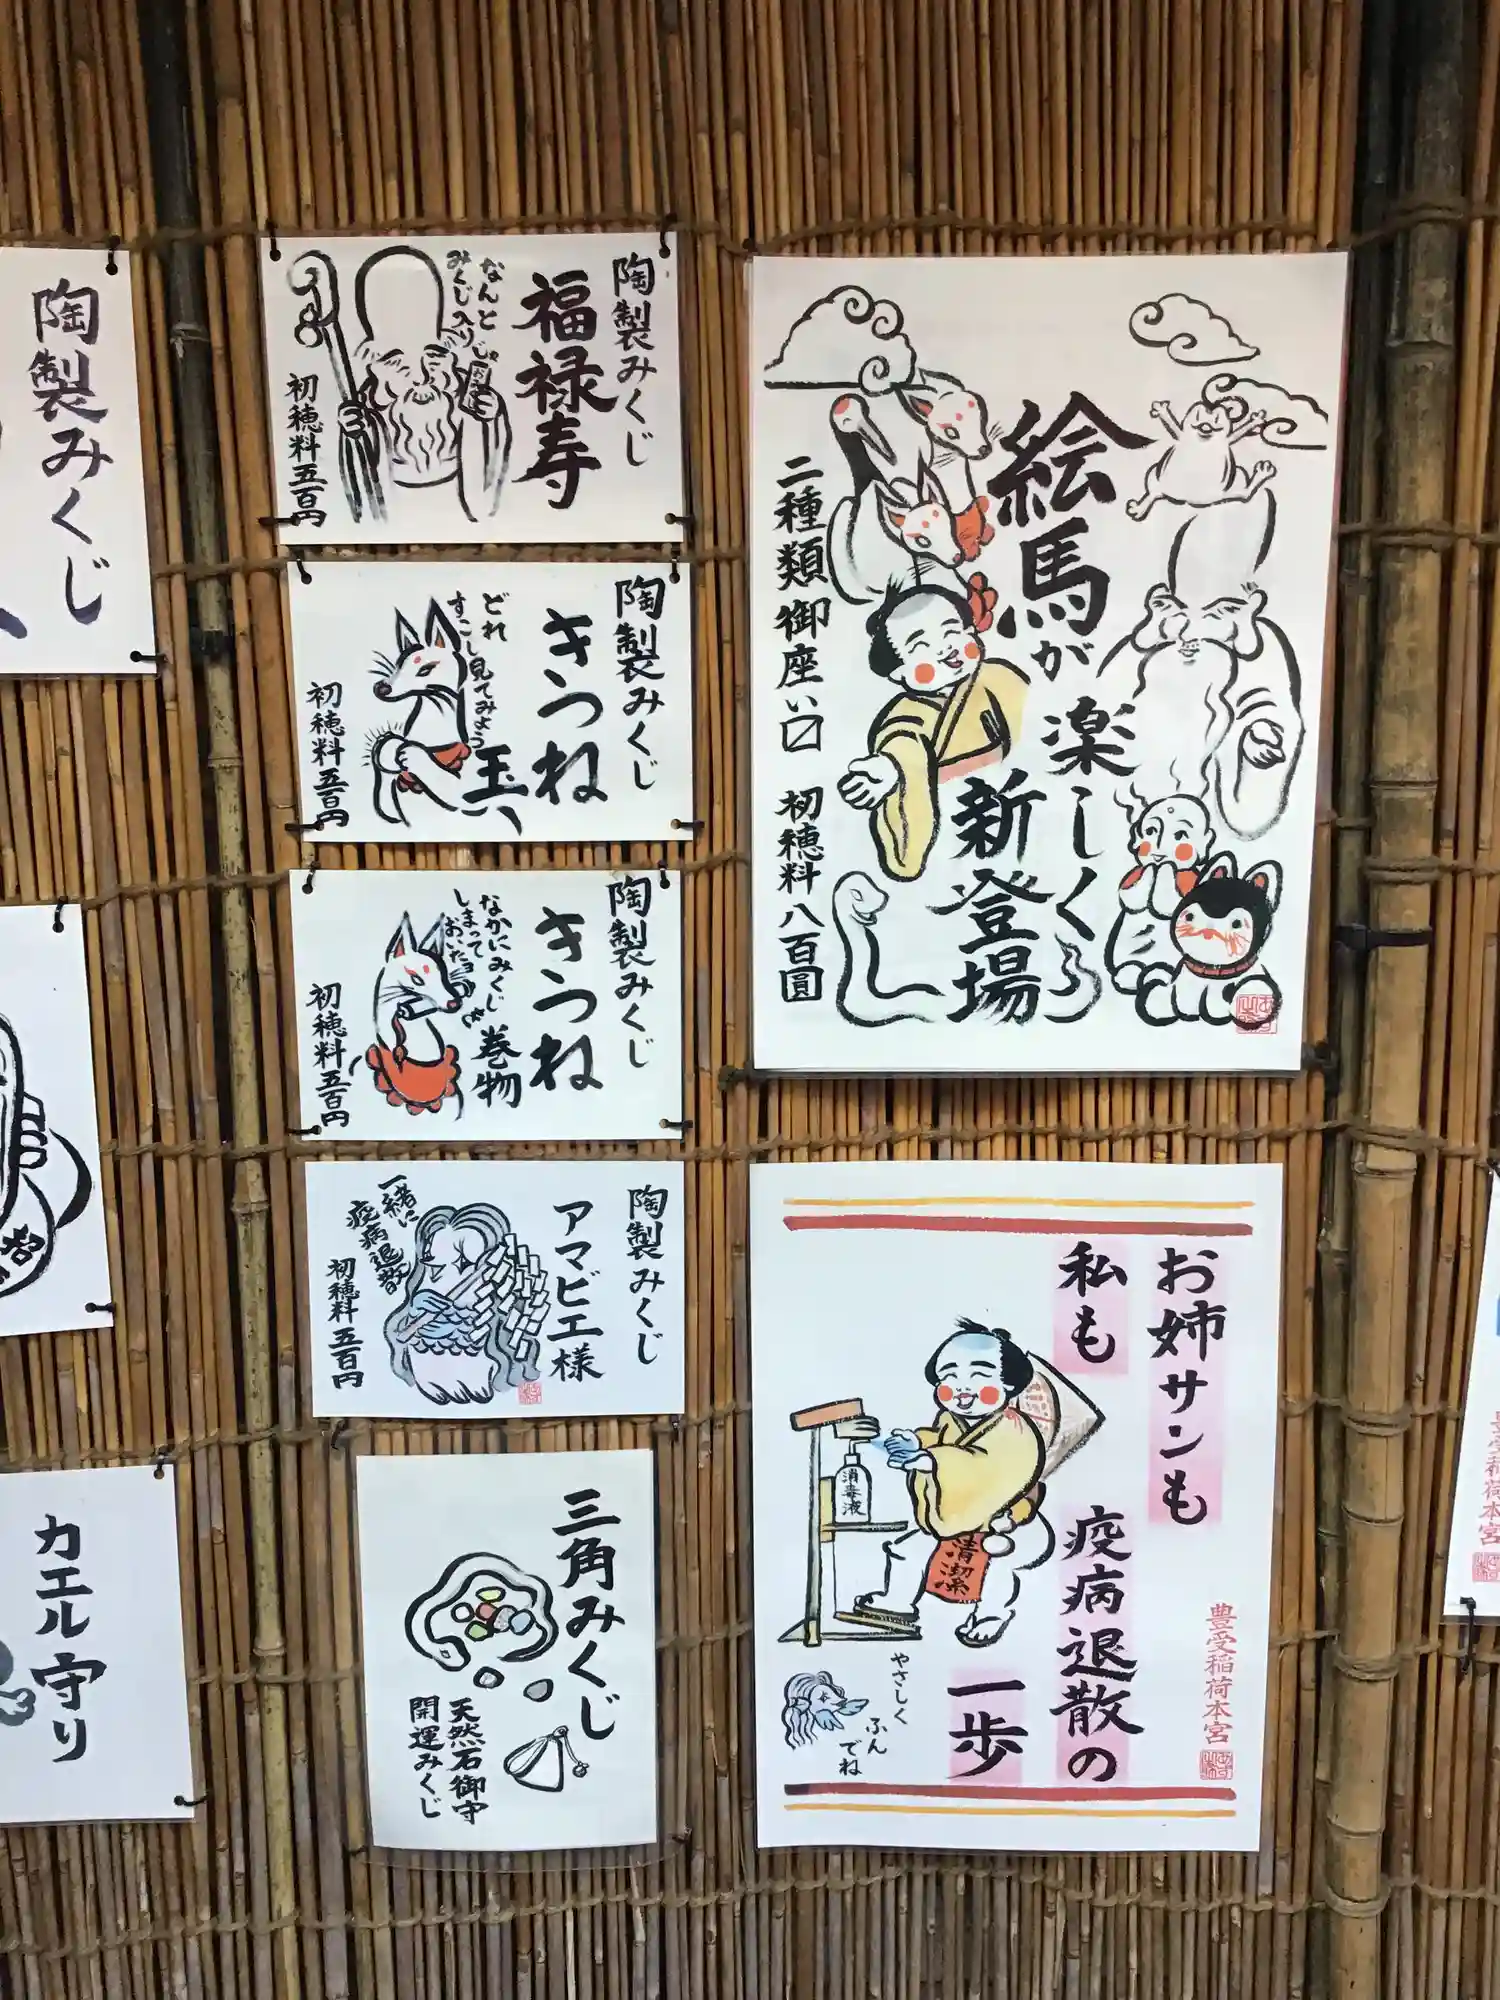 陶製みくじ
カエル守り
陶製みくじ
福禄寿
なんと
みくじ入り
初穂料五百円
陶製みくじ
きつね
玉
どれ
すこし見てみよう
初穂料五百円
陶製みくじ
きつね
巻物
なかにみくじ
しまって
おいたヨ
初穂料五百円
陶製みくじ
アマビエ様
一緒に
疫病退散
初穂料五百円
三角みくじ
天然石御守
開運みくじ
絵馬が楽しく
新登場
二種類御座い〼
初穂料八百圓
お姉サンも
私も
疫病退散の
一歩
消毒液
清潔
やさしく
ふん
でね
豊受稲荷本宮
豊受稲荷本宮